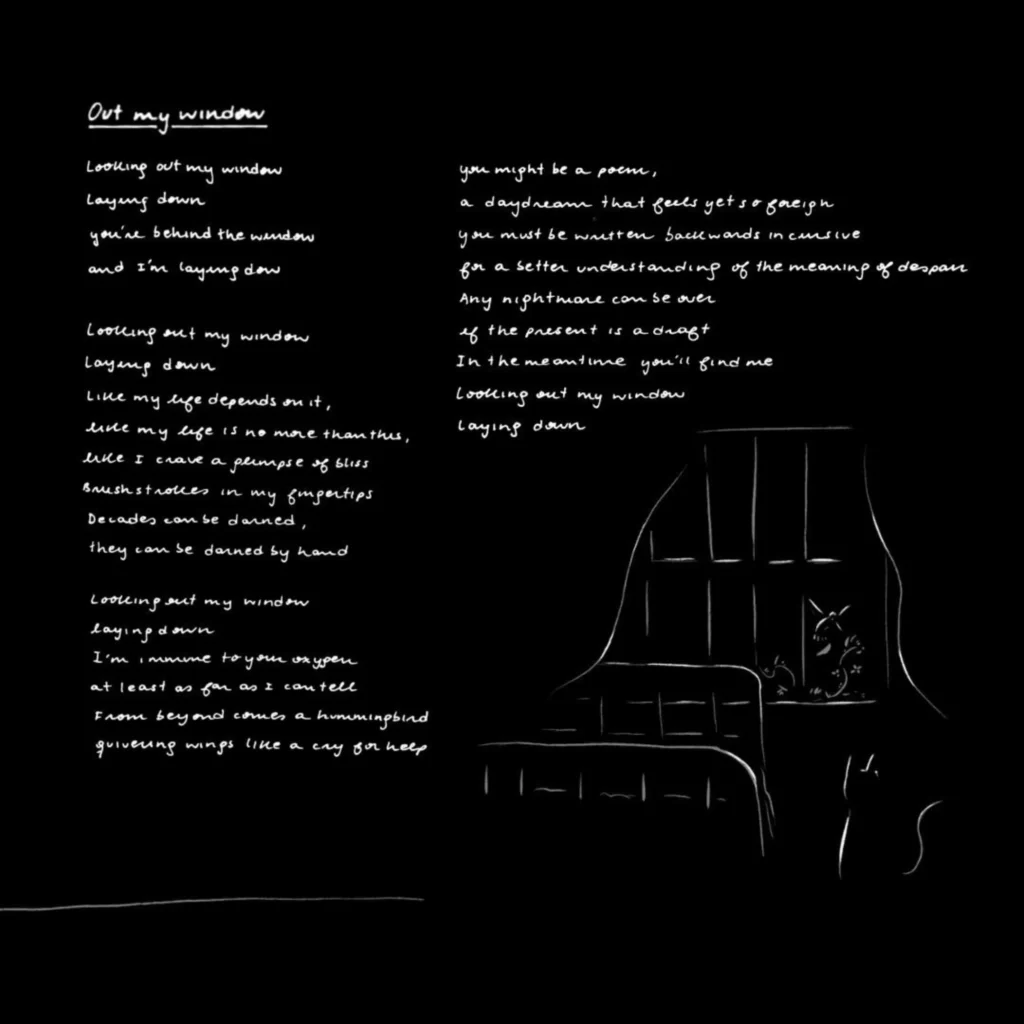 Out my window
Looking out my window
laying down
you're behind the window
and I'm laying dow
Looking out my window
laying down
Like my life depends on it,
like my life is no more than this,
like I crave a glimpse of bliss
Brushstrokes in my fingertips
Decades can be darned,
they can be darned by hand
Looking out my window
laying down
I'm immune to your oxygen
at least as far as I can tell
From beyond comes a hummingbird
quivering wings like a cry for help
you might be a poem,
a daydream that feels yet so foreign
you must be written backwards in cursive
for a better understanding of the meaning of despair
Any nightmare can be over
if the present is a draft
In the meantime you'll find me
Looking out my window
laying down